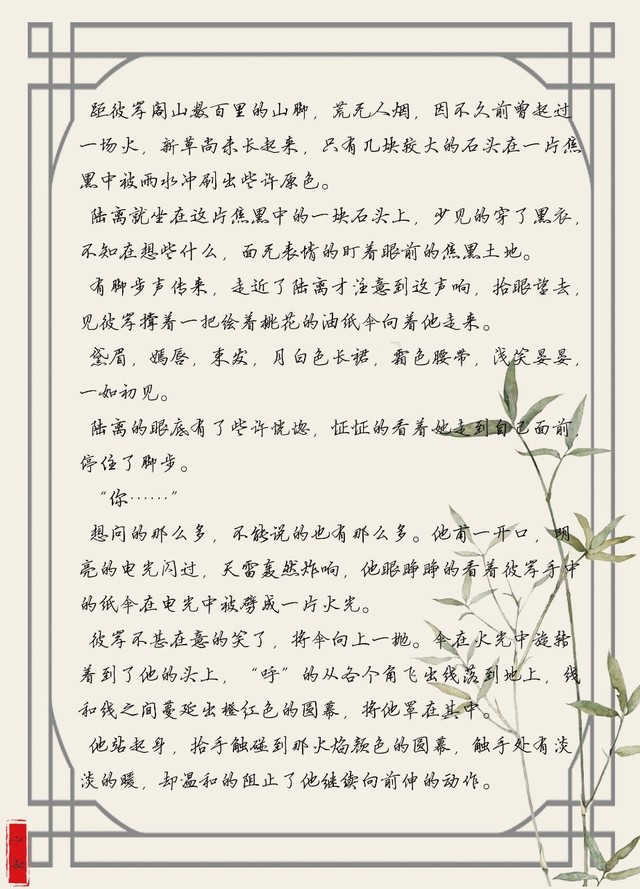 距彼岸阁山数百里的山脚，荒无人烟，因不久前曾起过
一场火，新草尚未长起来，只有几块较大的石头在一片焦
黑中被雨水冲刷出些许原色。
陆离就坐在这片焦黑中的一块石头上，少见的穿了黑衣，
不知在想些什么，面无表情的盯着眼前的焦黑土地。
有脚步声传来，走近了陆离才注意到这声响，抬眼望去，
见彼岸撑着一把绘着桃花的油纸伞向着他走来。
黛眉，嫣唇，束发，月白色长裙，霜色腰带，浅笑晏晏，
一如初见。
陆离的眼底有了些许恍惚，怔怔的看着她走到自己面前，
停住了脚步。
“你……”
想问的那么多，不能说的也有那么多。他甫一开口，明
亮的电光闪过，天雷轰然炸响，他眼睁睁的看着彼岸手中
的纸伞在电光中被劈成一片火光。
彼岸不甚在意的笑了，将伞向上一抛。伞在火光中旋转
着到了他的头上，“呼”的从各个角飞出线落到地上，线
和线之间蔓延出橙红色的圆幕，将他罩在其中。
他站起身，抬手触碰到那火焰颜色的圆幕，触手处有淡
淡的暖，却温和的阻止了他继续向前伸的动作。